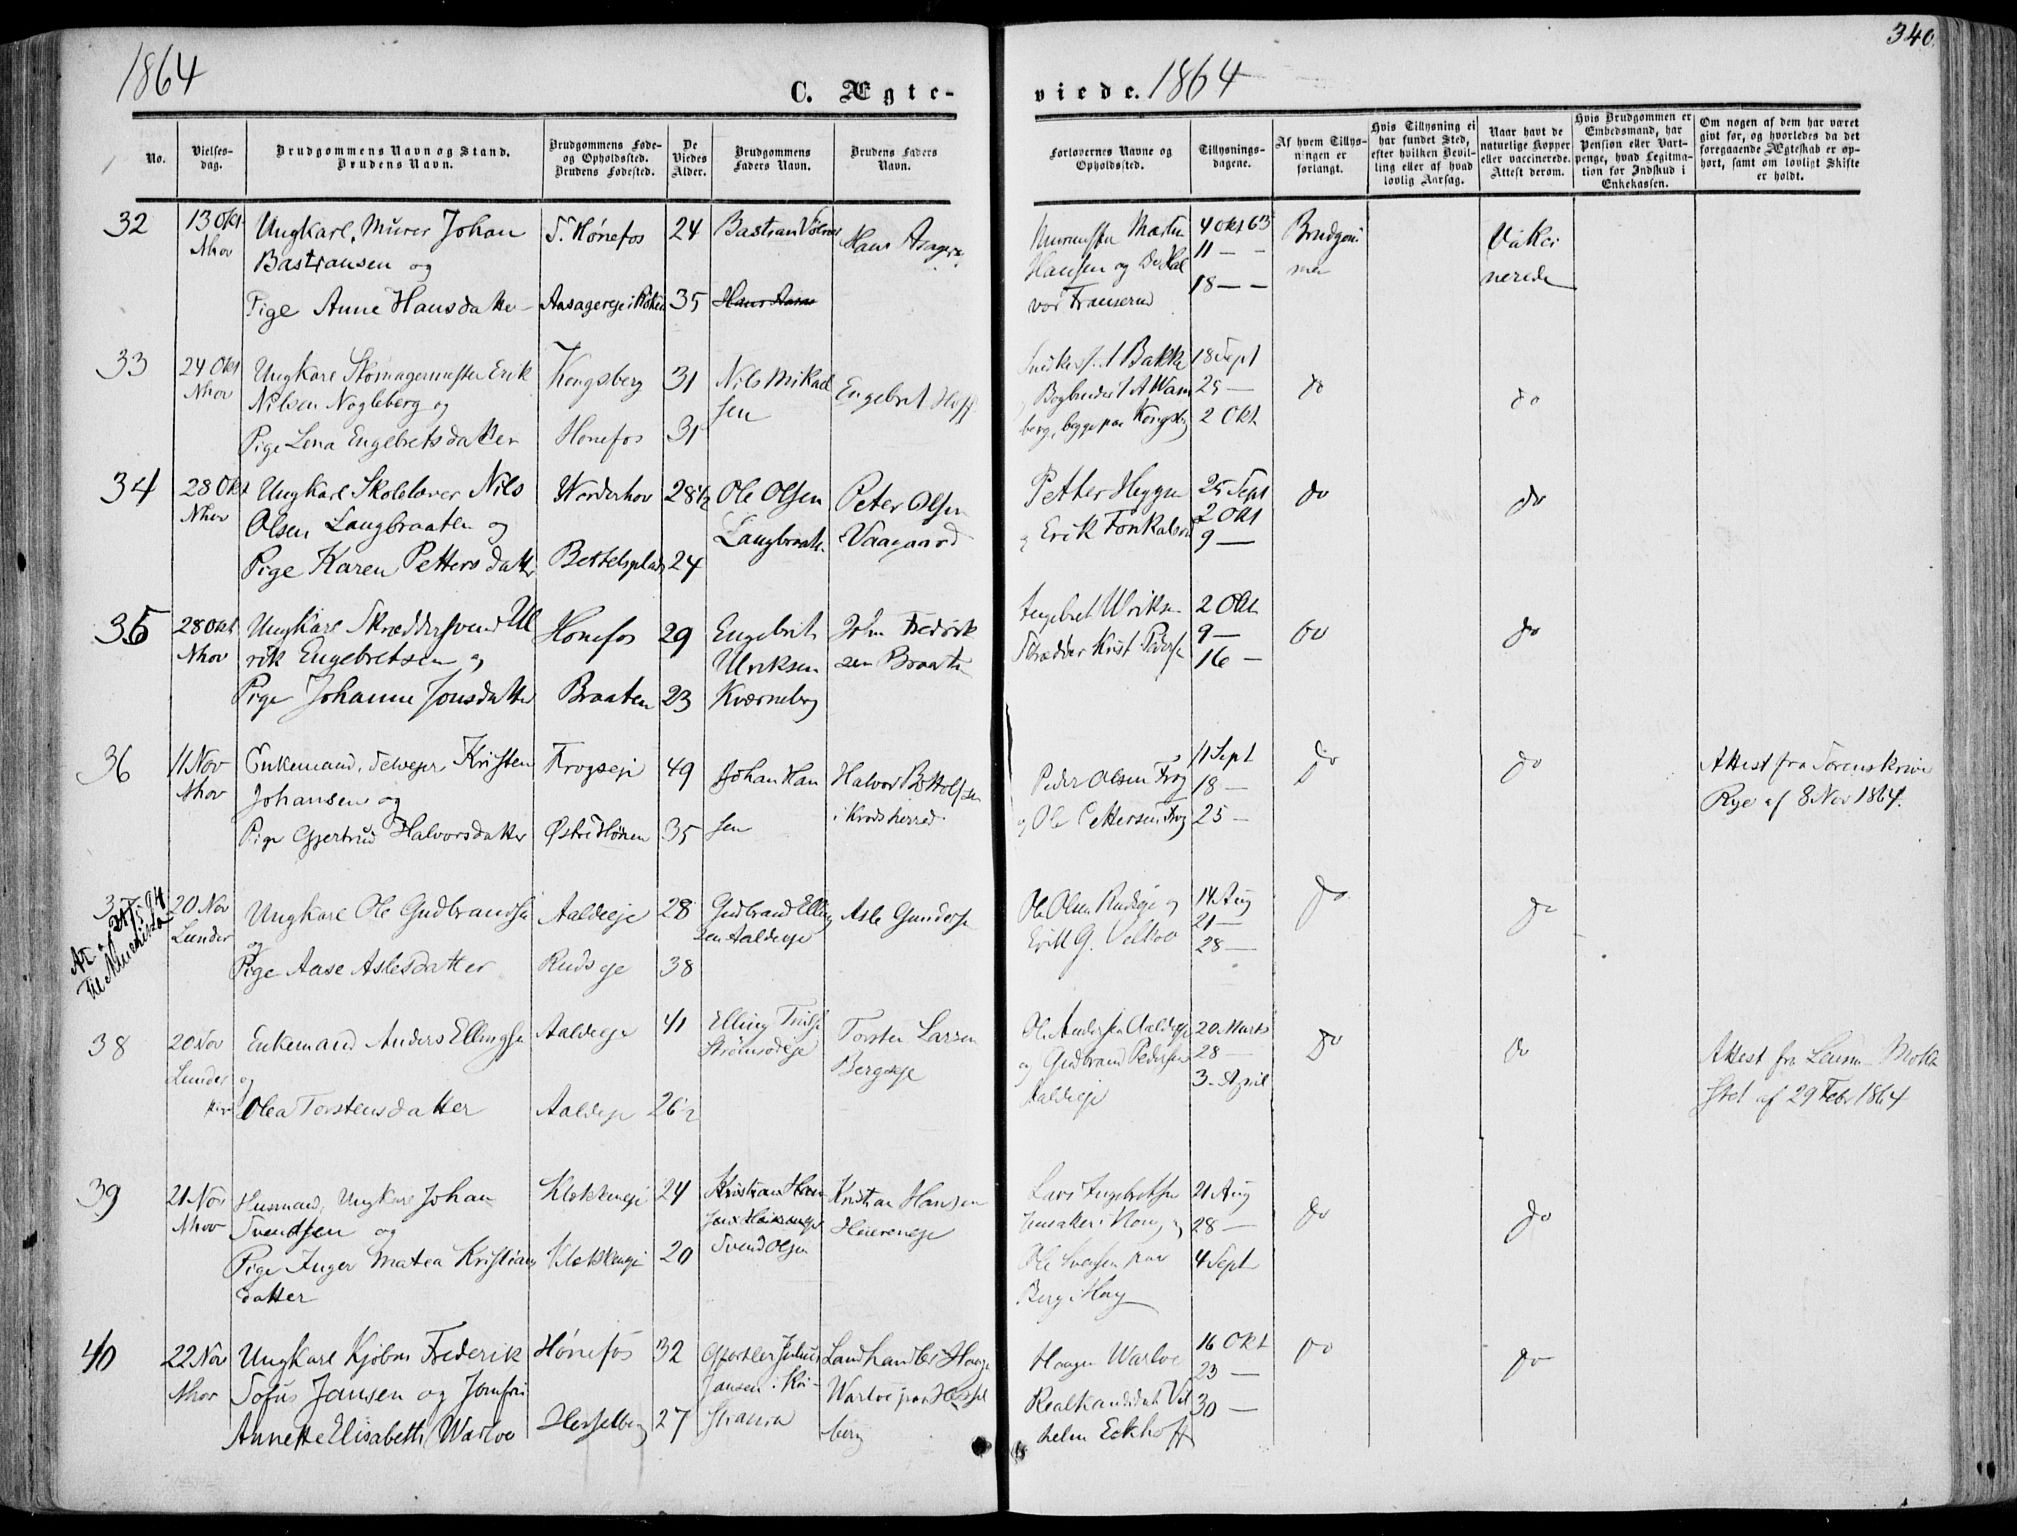 1864
C. Ægte-
No.
Vielses-
dag.
Brudgommens Navn og Stand.
Brudens Navn.
Brudgommens Føde-
og Opholdssted.
Brudens Fødested.
De
Viedes
Alder.
Brudgommens
Faders Navn.
Brudens Faders
Navn.
32
13 Okt
Nhov
Ungkarl, Murer Johan
Bastiansen og
Pige Anne Hansdatter
S. Hønefos
24
35
Bastian
Hans
33
24 Okt
Nhov
Ungkarl Skomagermester Erik
Nilsen Nogleberg og
Pige Lena Engebretsdatter
Kongsberg
Hønefos
31
31
Nils Mikael
sen
Engebret Hoff
34
28 Okt
Nhov
Ungkarl Skolelærer Nils
Olsen Langbraaten og
Pige Karen Petters datter
Norderhov
28 1/2
24
Ole Olsen
Langbraaten
Peter Olsen
Vaagaard
35
28 Okt
Nhov
Ungkarl Skræddersvend Ul
rik Engebretsen og
Pige Johanne Jonsdatter
Hønefos
Braaten
29
23
Engebret
Ulriksen
Kværneberg
John Fredrik
sen Braaten
36
11 Nov
Nhov
Enkemand, Selveier Kristen
Johansen og
Pige Gjertrud Halvorsdatter
Frogseje
Østre Hønen
49
35
Johan Han
sen
Halvor Bottolfsen
i Krødsherred
37
20 Nov
Lunder
Ungkarl Ole Gudbrandsen
og
Pige Aase Aslesdatter
Aaldseje
Rudseje
28
38
Gudbrand Elling
sen Aaldseje
Asle Gundersen
38
20 Nov
Lunder
Enkemand Anders Ellingsen
og
Olea Torstensdatter
Aaldseje
Aaldseje
41
26 1/2
Elling
Strømsodeje
Torsten Larsen
Bergseje
39
21 Nov
Nhov
Husmand, Ungkarl Johan
Svendsen og
Pige Inger Matea Kristians
datter
Klækkeneje
Klækkeneje
24
20
Kristian Han
Svend Olsen
Kristian Hansen
40
22 Nov
Nhov
Ungkarl Kjøbm Frederik
Sofus Jansen og Jomfru
Annette Elisabeth Warloe
Hønefos
Hesselberg
32
27
Jansen i Kri-
stiania
Landhandler Haagen
Warloe paa Hessel
berg
340.
viede. 1864
Forlovernes Navne og
Opholdssted.
Tillysnings-
dagene.
Af hvem Tillys-
ningen er
forlangt.
Hvis Tillysning ei
har fundet Sted,
efter hvilken Bevil-
ling eller af hvad
lovlig Aarsag.
Naar havt de
naturlige Kopper
eller vaccinerede.
Attest derom.
Hvis Brudgommen er
Embedsmand, har
Pension eller Vart-
penge, hvad Legitma-
tion for Indskud i
Enkekassen.
Om nogen af dem har været
givt før, og hvorledes da det
foregaaende Ægteskab er op-
hørt, samt om lovligt Skifte
er holdt.
Hansen og
4 Okt 63
11 – –
18 – –
Brudgom
men
Vakci
nerede
Bakke
berg, begge paa Kongsberg
18 Sept
25 –
2 Okt
do
do
Petter Heggen
og Erik
25 Sept
2 Okt
9 –
do
do
Engebret Ulriksen
Skrædder Krist Pedersen
2 Okt
9 –
16 –
do
do
Peder Olsen Frog
og Ole Pettersen Frog
11 Sept
18 –
25 –
do
do
Attest fra Sorenskriver
Rye af 8 Nov 1864.
Ole Olsen Rudseje og
Erik G. Velkov
14 Aug
21 –
28 –
do
do
Ole Andersen Aaldseje
og Gudbrand Pedersen
Aaldseje
20 Marts
28 –
3 April
do
do
Attest fra
af 29 Febr 1864
Lars Engebretsen
21 Aug
28 –
4 Sept
Ole Svensen paa
Berg i Houg
do
do
Haagen Warloe
Realkandidat Vil
helm Eckhoff
16 Okt
23 –
30 –
do
do